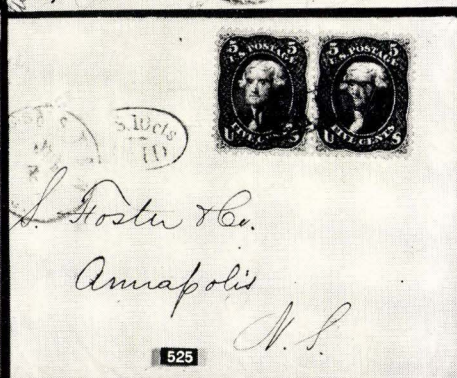 5 5
U.S. POSTAGE
U FIVE CENTS S
5 5
U.S. POSTAGE
U FIVE CENTS S
S. 10cts
PAID
S. Foster & Co.
Annapolis
N. S.
525